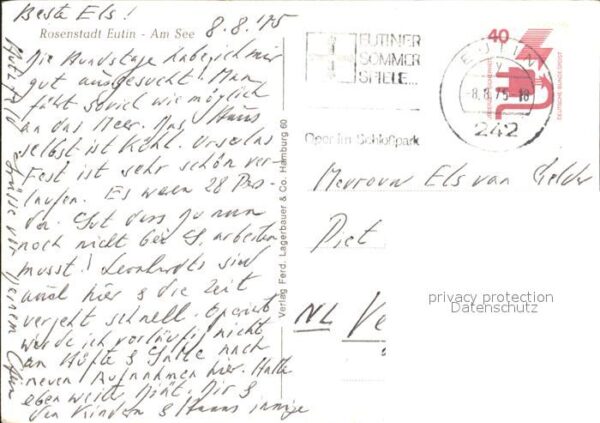 Beste Els!
8.8.'75
Rosenstadt Eutin - Am See
Die Hundstage habe ich mir
gut ausgesucht! Man
fährt soviel wie möglich
an das Meer. Das Haus
selbst ist kühl. Ursulas
Fest ist sehr schön ver-
laufen. Es waren 28 Per-
so. Gut dass Du nun
noch nicht bei arbeiten
musst! Leonhardts sind
auch hier & die Zeit
vergeht schnell. Operiert
werde ich vorläufig nicht
an Hüfte & Galle nach
neuen Aufnahmen hier. Hatte
eben weite Dir &
den Kindern & Hans innige
Grüsse von
Verlag Ferd. Lagerbauer & Co. Hamburg 60
EUTINER
SOMMER
SPIELE...
Oper im Schloßpark
EUTIN
-8.8.75-18
242
40
DEUTSCHE BUNDESPOST
Mevrouw Els van Gelder
Piet
NL Ve
privacy protection
Datenschutz